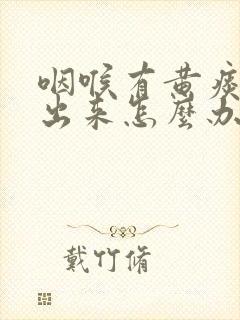 咽喉有黄痰
出来怎麽办
戴竹脩